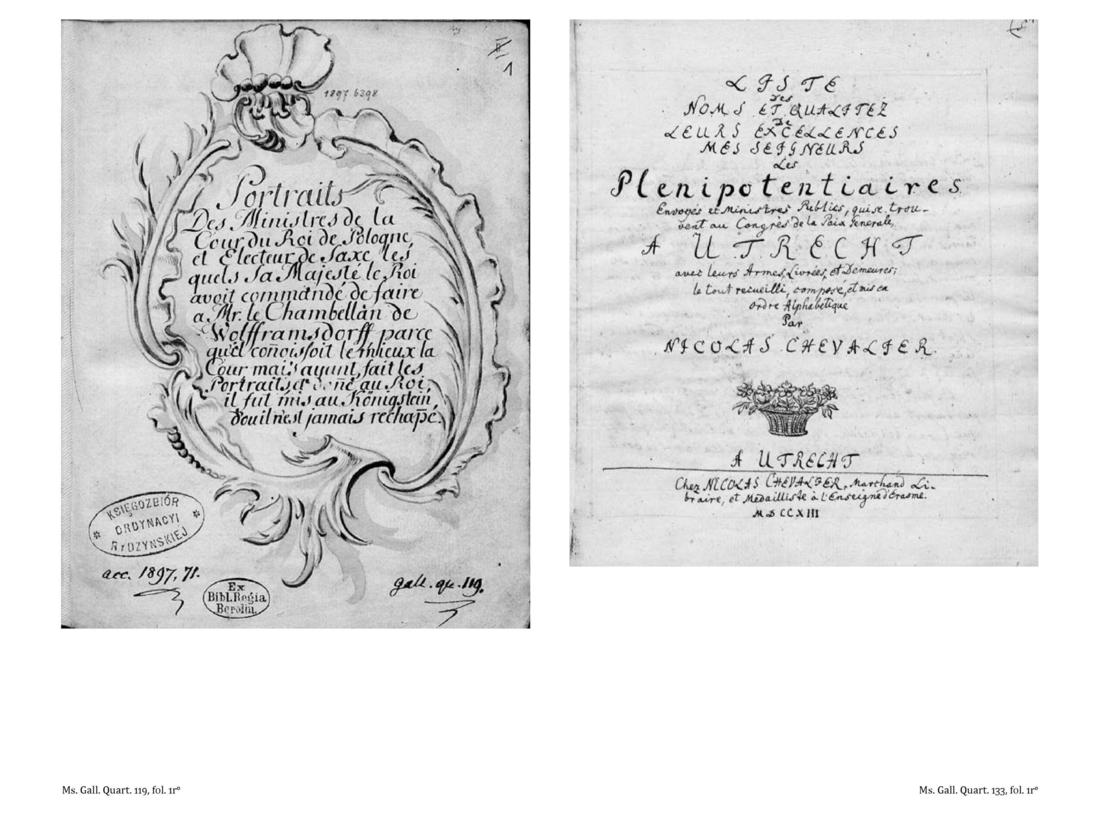 1897 6398
II
1
Portraits
Des Ministres de la
Cour du Roi de Pologne
et Electeur de Saxe, les
quels Sa Majesté le Roi
avoit commandé de faire
a Mr. le Chambellan de
Wolfframsdorff parce
qu'el coñoissoit le mieux la
Cour mais ayant fait les
Portraits et doñé au Roi,
il fut mis au Königstein,
d'ou il n'est jamais rechapé.
KSIĘGOZBIÓR
ORDYNACYI
RYDZYŃSKIEJ
acc. 1897, 71.
Ex
Bibl. Regia
Berolin.
gall. qu. 119.
LISTE
des
NOMS ET QUALITEZ
De
LEURS EXCELLENCES
MES SEIGNEURS
Les
Plenipotentiaires
Envoyés et Ministres Publics, qui se trou-
vent au Congrès de la Paix Generale,
A UTRECHT
avec leurs Armes, Livrées, et Demeures;
le tout recueilli, composé, et mis en
ordre Alphabetique
Par
NICOLAS CHEVALIER.
A UTRECHT
Chez NICOLAS CHEVALIER, Marchand Li-
braire, et Medailliste à l'Enseigne d'Erasme.
MDCCXIII
Ms. Gall. Quart. 119, fol. 1rº
Ms. Gall. Quart. 133, fol. 1rº